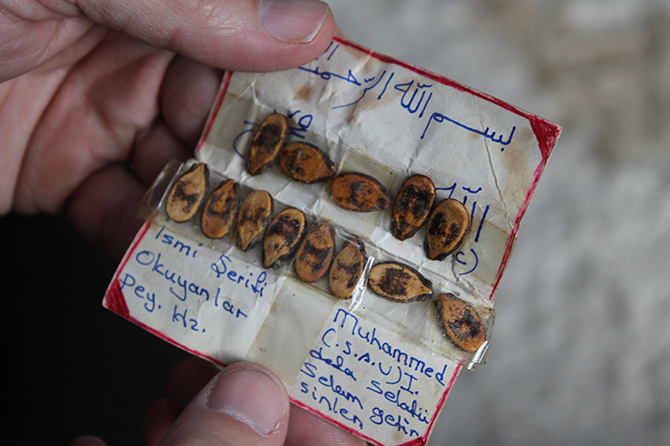 بسم الله الرحمن
الله
(C)
Ismi Şerifi
Okuyanlar
Pey. Hz.
Muhammed
(.S.A.V)I.
defa Selatü
Selam getir
sinler